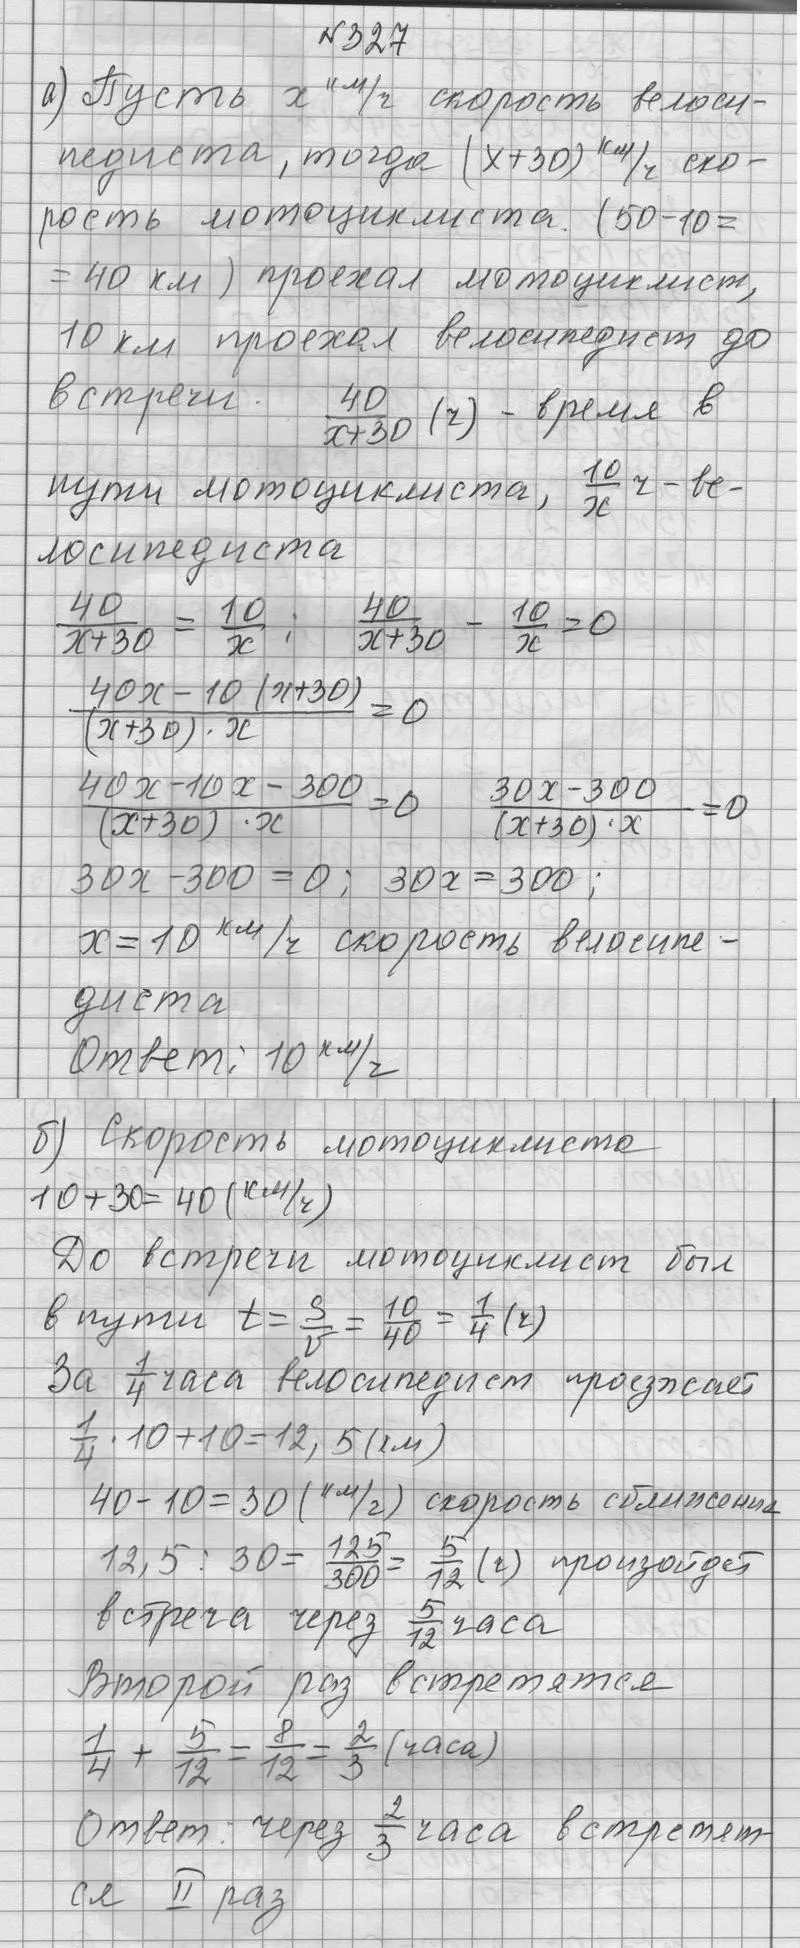 №327
а) Пусть x км/ч скорость велоси-
педиста, тогда (x+30) км/ч ско-
рость мотоциклиста. (50-10=
= 40 км) проехал мотоциклист,
10 км проехал велосипедист до
встречи. 40/(x+30) (ч) - время в
пути мотоциклиста, 10/x ч - ве-
лосипедиста
40/(x+30) = 10/x ; 40/(x+30) - 10/x = 0
(40x - 10(x+30))/((x+30)·x) = 0
(40x-10x-300)/((x+30)·x) = 0 (30x-300)/((x+30)·x) = 0
30x-300=0; 30x=300;
x=10 км/ч скорость велосипе-
диста
Ответ: 10 км/ч
б) Скорость мотоциклиста
10+30=40 (км/ч)
До встречи мотоциклист был
в пути t = S/v = 10/40 = 1/4 (ч)
За 1/4 часа велосипедист проезжает
1/4 · 10+10=12,5 (км)
40-10=30 (км/ч) скорость сближения
12,5 : 30 = 125/300 = 5/12 (ч) произойдет
встреча через 5/12 часа
Второй раз встретятся
1/4 + 5/12 = 8/12 = 2/3 (часа)
Ответ: через 2/3 часа встретят-
ся II раз